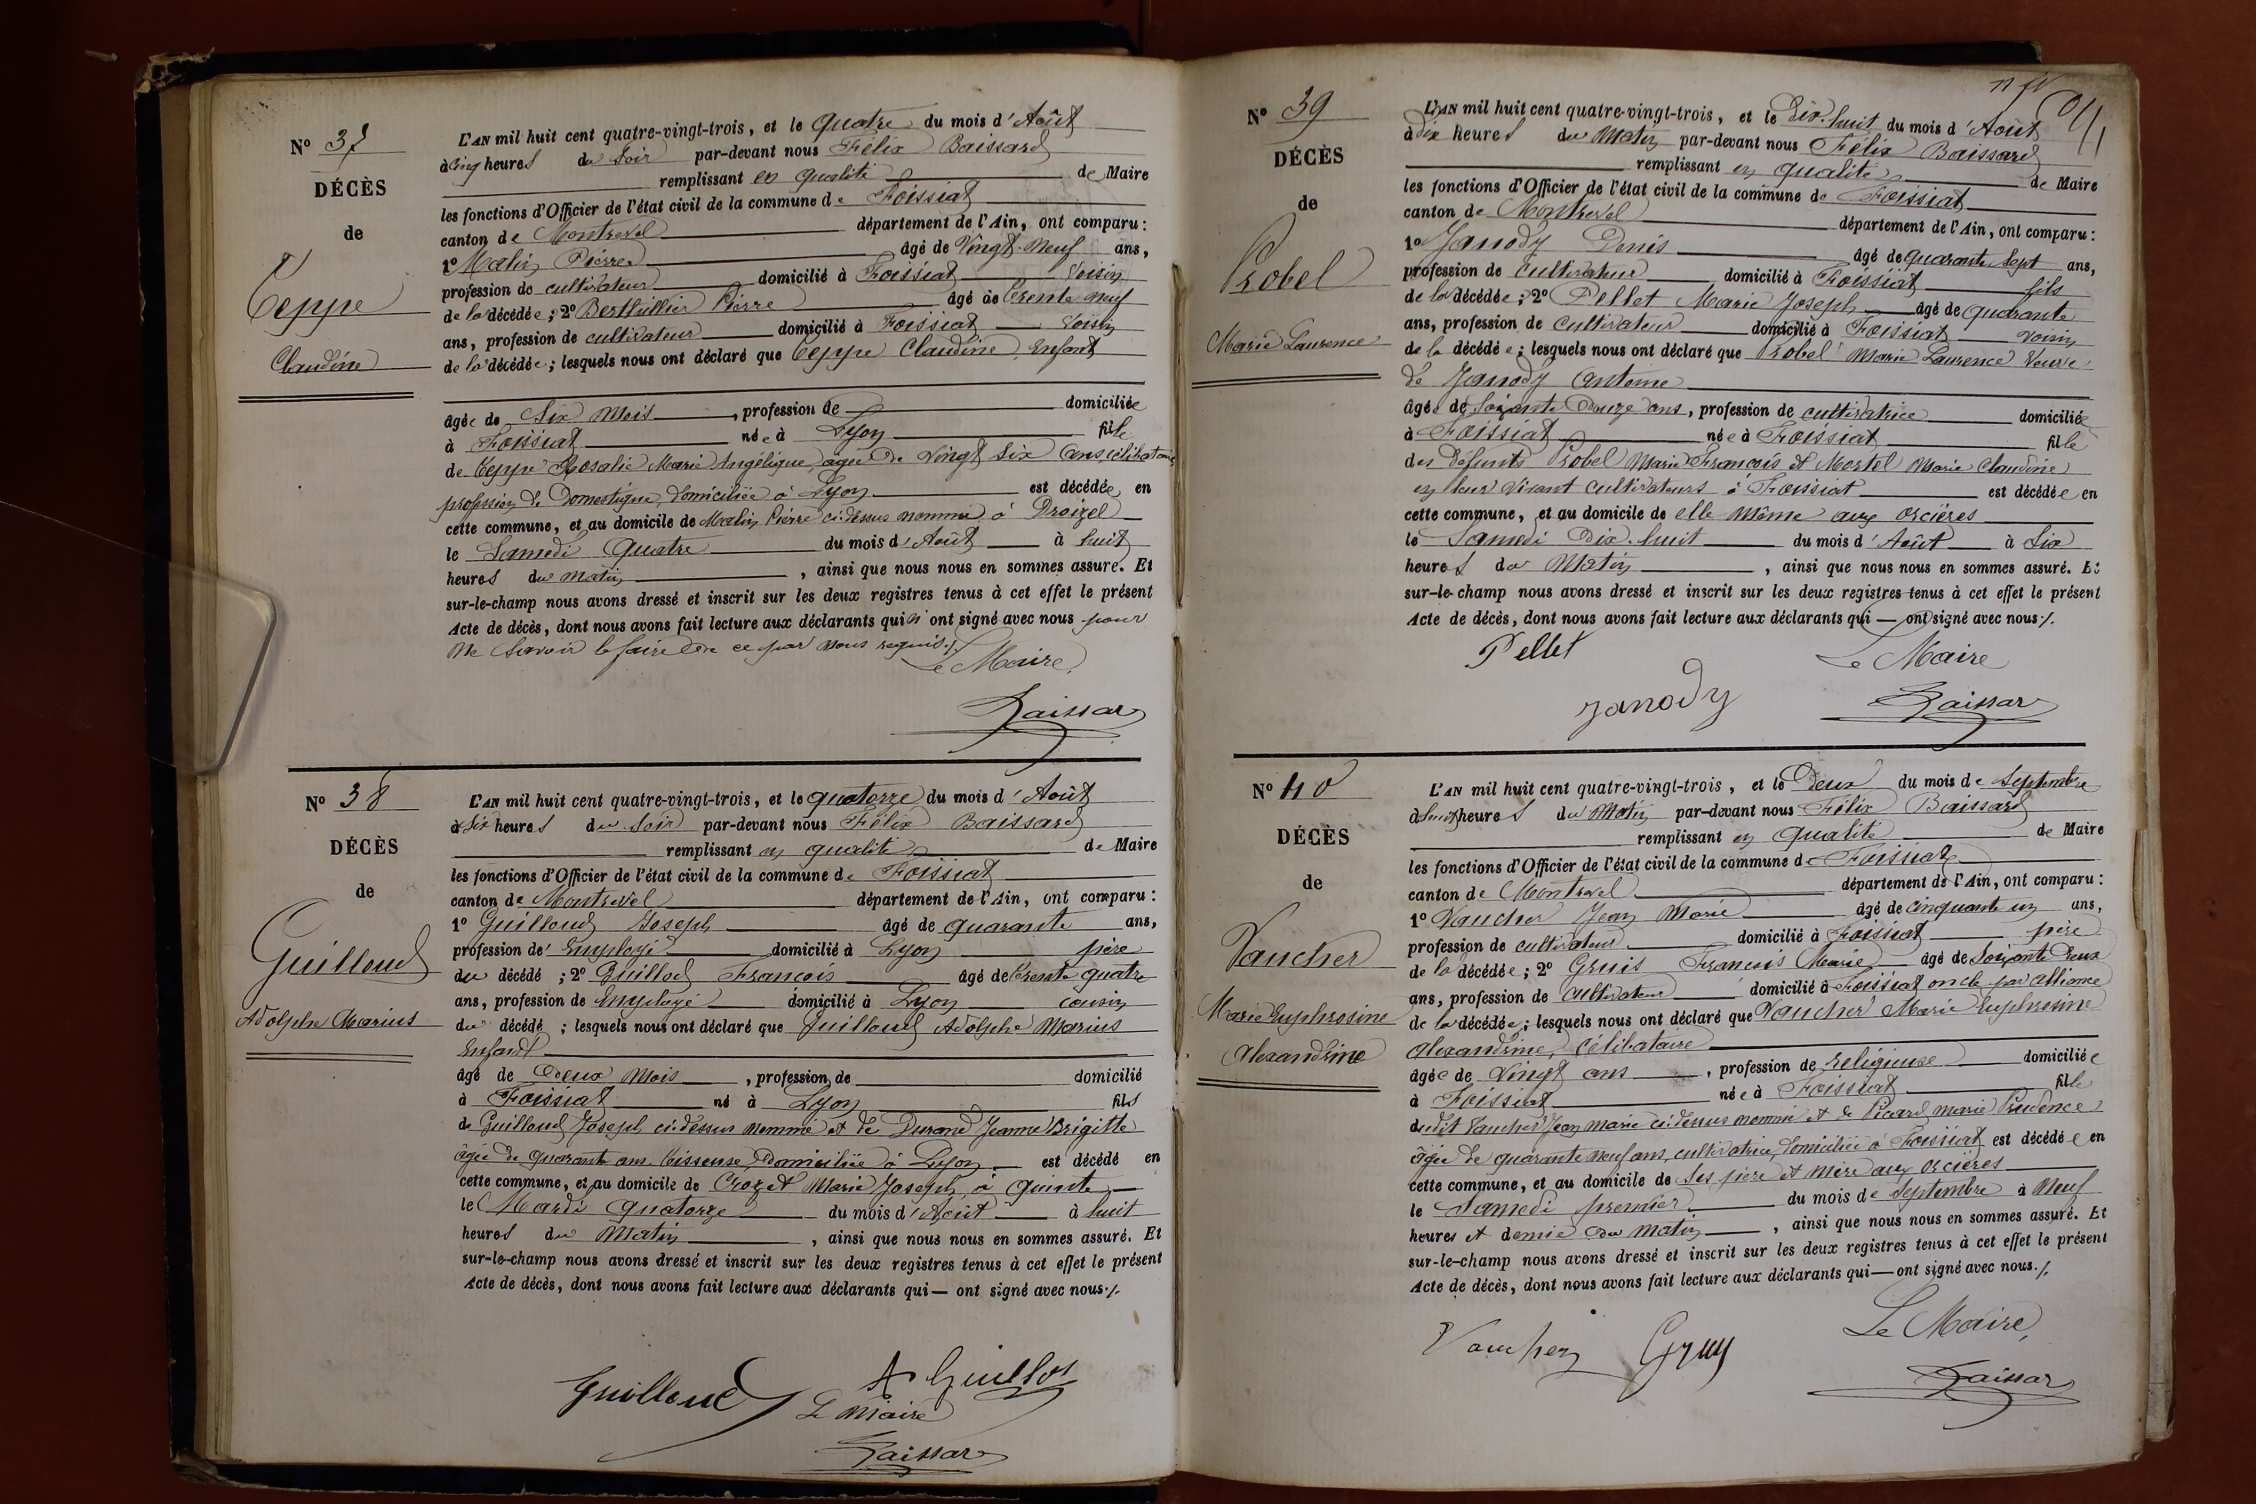 N° 37
DÉCÈS
de
Teppe
Claudine
L'AN mil huit cent quatre-vingt-trois, et le quatre du mois d'Août
à cinq heures du soir par-devant nous Félix Baissard
remplissant en qualité de Maire
les fonctions d'Officier de l'état civil de la commune de Foissiat
canton de Montrevel département de l'Ain, ont comparu :
1° Malin Pierre âgé de Vingt-Neuf ans,
profession de cultivateur domicilié à Foissiat Voisin
de la décédée ; 2° Berthillier Pierre âgé de trente neuf
ans, profession de cultivateur domicilié à Foissiat Voisin
de la décédée ; lesquels nous ont déclaré que Teppe Claudine, Enfant
âgée de Six Mois, profession de domiciliée
à Foissiat née à Lyon fille
de Teppe Rosalie Marie Angélique, agée de Vingt Six ans, célibataire,
profession de Domestique, domiciliée à Lyon est décédée en
cette commune, et au domicile de Malin Pierre ci-dessus nommé à Droizel
le Samedi quatre du mois d'Août à huit
heures du matin, ainsi que nous nous en sommes assuré. Et
sur-le-champ nous avons dressé et inscrit sur les deux registres tenus à cet effet le présent
Acte de décès, dont nous avons fait lecture aux déclarants qui n'ont signé avec nous pour
ne savoir le faire de ce par nous requis ./.
Le Maire,
Baissard
N° 38
DÉCÈS
de
Guilloud
Adolphe Marius
L'AN mil huit cent quatre-vingt-trois, et le quatorze du mois d'Août
à Six heures du soir par-devant nous Félix Baissard
remplissant en qualité de Maire
les fonctions d'Officier de l'état civil de la commune de Foissiat
canton de Montrevel département de l'Ain, ont comparu :
1° Guilloud Joseph âgé de quarante ans,
profession d'Employé domicilié à Lyon père
du décédé ; 2° Guillod François âgé de trente quatre
ans, profession de Employé domicilié à Lyon cousin
du décédé ; lesquels nous ont déclaré que Guilloud Adolphe Marius
Enfant
âgé de Deux Mois, profession de domicilié
à Foissiat né à Lyon fils
de Guilloud Joseph ci-dessus nommé et de Durand Jeanne Brigitte
âgée de quarante ans, tisseuse, domiciliée à Lyon est décédé en
cette commune, et au domicile de Crozet Marie Joseph à Quinte
le Mardi quatorze du mois d'Août à huit
heures du Matin, ainsi que nous nous en sommes assuré. Et
sur-le-champ nous avons dressé et inscrit sur les deux registres tenus à cet effet le présent
Acte de décès, dont nous avons fait lecture aux déclarants qui — ont signé avec nous ./.
Guilloud
Guillod
Le Maire
Baissard
N° 39
DÉCÈS
de
Probel
Marie Laurence
L'AN mil huit cent quatre-vingt-trois, et le Dix-huit du mois d'Août
à dix heures du Matin par-devant nous Félix Baissard
remplissant en qualité de Maire
les fonctions d'Officier de l'état civil de la commune de Foissiat
canton de Montrevel département de l'Ain, ont comparu :
1° Janody Denis âgé de quarante sept ans,
profession de Cultivateur domicilié à Foissiat fils
de la décédée ; 2° Pellet Marie Joseph âgé de quarante
ans, profession de cultivateur domicilié à Foissiat voisin
de la décédée ; lesquels nous ont déclaré que Probel Marie Laurence Veuve
de Janody Antoine
âgée de soixante Douze ans, profession de cultivatrice domiciliée
à Foissiat née à Foissiat fille
des défunts Probel Marie François et Mortel Marie Claudine
en leur vivant cultivateurs à Foissiat est décédée en
cette commune, et au domicile de elle même aux orcières
le Samedi Dix-huit du mois d'Août à Six
heures du Matin, ainsi que nous nous en sommes assuré. Et
sur-le-champ nous avons dressé et inscrit sur les deux registres tenus à cet effet le présent
Acte de décès, dont nous avons fait lecture aux déclarants qui — ont signé avec nous ./.
Pellet
Le Maire
Janody
Baissard
N° 40
DÉCÈS
de
Vaucher
Marie Euphrosine
Alexandrine
L'AN mil huit cent quatre-vingt-trois, et le Deux du mois de Septembre
à huit heures du Matin par-devant nous Félix Baissard
remplissant en qualité de Maire
les fonctions d'Officier de l'état civil de la commune de Foissiat
canton de Montrevel département de l'Ain, ont comparu :
1° Vaucher Jean Marie âgé de cinquante un ans,
profession de cultivateur domicilié à Foissiat père
de la décédée ; 2° Gruis François Marie âgé de Soixante Deux
ans, profession de cultivateur domicilié à Foissiat oncle par alliance
de la décédée ; lesquels nous ont déclaré que Vaucher Marie Euphrosine
Alexandrine, Célibataire
âgée de Vingt ans, profession de religieuse domiciliée
à Foissiat née à Foissiat fille
dudit Vaucher Jean marie ci-dessus nommé et de Picard marie Prudence
âgée de quarante neuf ans, cultivatrice, domiciliée à Foissiat est décédée en
cette commune, et au domicile de ses père et mère aux orcières
le Samedi premier du mois de Septembre à Neuf
heures et demie du matin, ainsi que nous nous en sommes assuré. Et
sur-le-champ nous avons dressé et inscrit sur les deux registres tenus à cet effet le présent
Acte de décès, dont nous avons fait lecture aux déclarants qui — ont signé avec nous ./.
Le Maire,
Vaucher
Gruy
Baissard